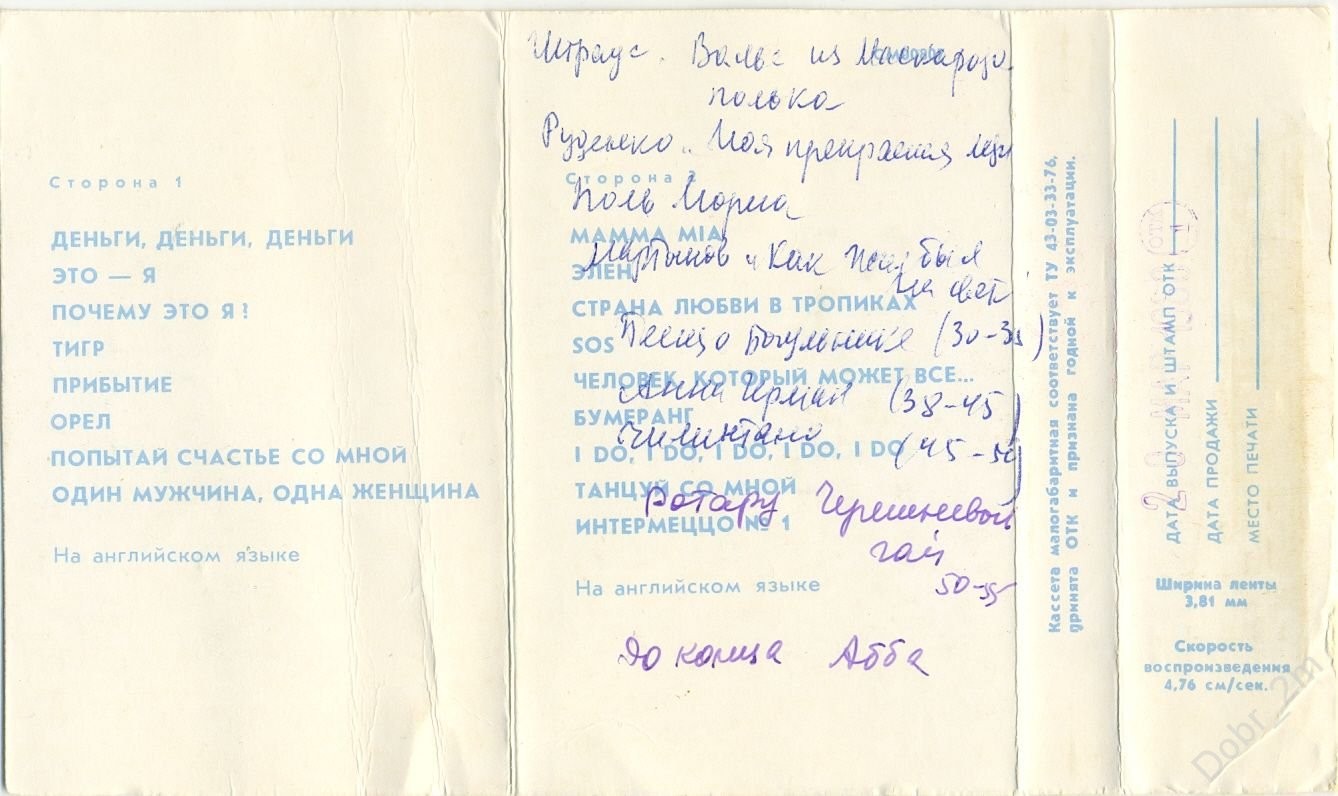 Сторона 1
ДЕНЬГИ, ДЕНЬГИ, ДЕНЬГИ
ЭТО — Я
ПОЧЕМУ ЭТО Я?
ТИГР
ПРИБЫТИЕ
ОРЕЛ
ПОПЫТАЙ СЧАСТЬЕ СО МНОЙ
ОДИН МУЖЧИНА, ОДНА ЖЕНЩИНА
На английском языке
Штраус. Вальс из
полька
Руденко. Моя прекрасная
Сторона 2
Поль Мориа
MAMMA MIA
Мартынов "Как
ЭЛЕН
СТРАНА ЛЮБВИ В ТРОПИКАХ
SOS
ЧЕЛОВЕК, КОТОРЫЙ МОЖЕТ ВСЕ...
Анна Герман (38-45)
БУМЕРАНГ
I DO, I DO, I DO, I DO, I DO
ТАНЦУЙ СО МНОЙ
Ротару Черешневый
гай
ИНТЕРМЕЦЦО № 1
50-55
На английском языке
До конца Абба
Кассета малогабаритная соответствует ТУ 43-03-33-76,
принята ОТК и признана годной к эксплуатации.
ДАТА ВЫПУСКА И ШТАМП ОТК
ДАТА ПРОДАЖИ
МЕСТО ПЕЧАТИ
Ширина ленты
3,81 мм
Скорость
воспроизведения
4,76 см/сек.
Dobr_2m